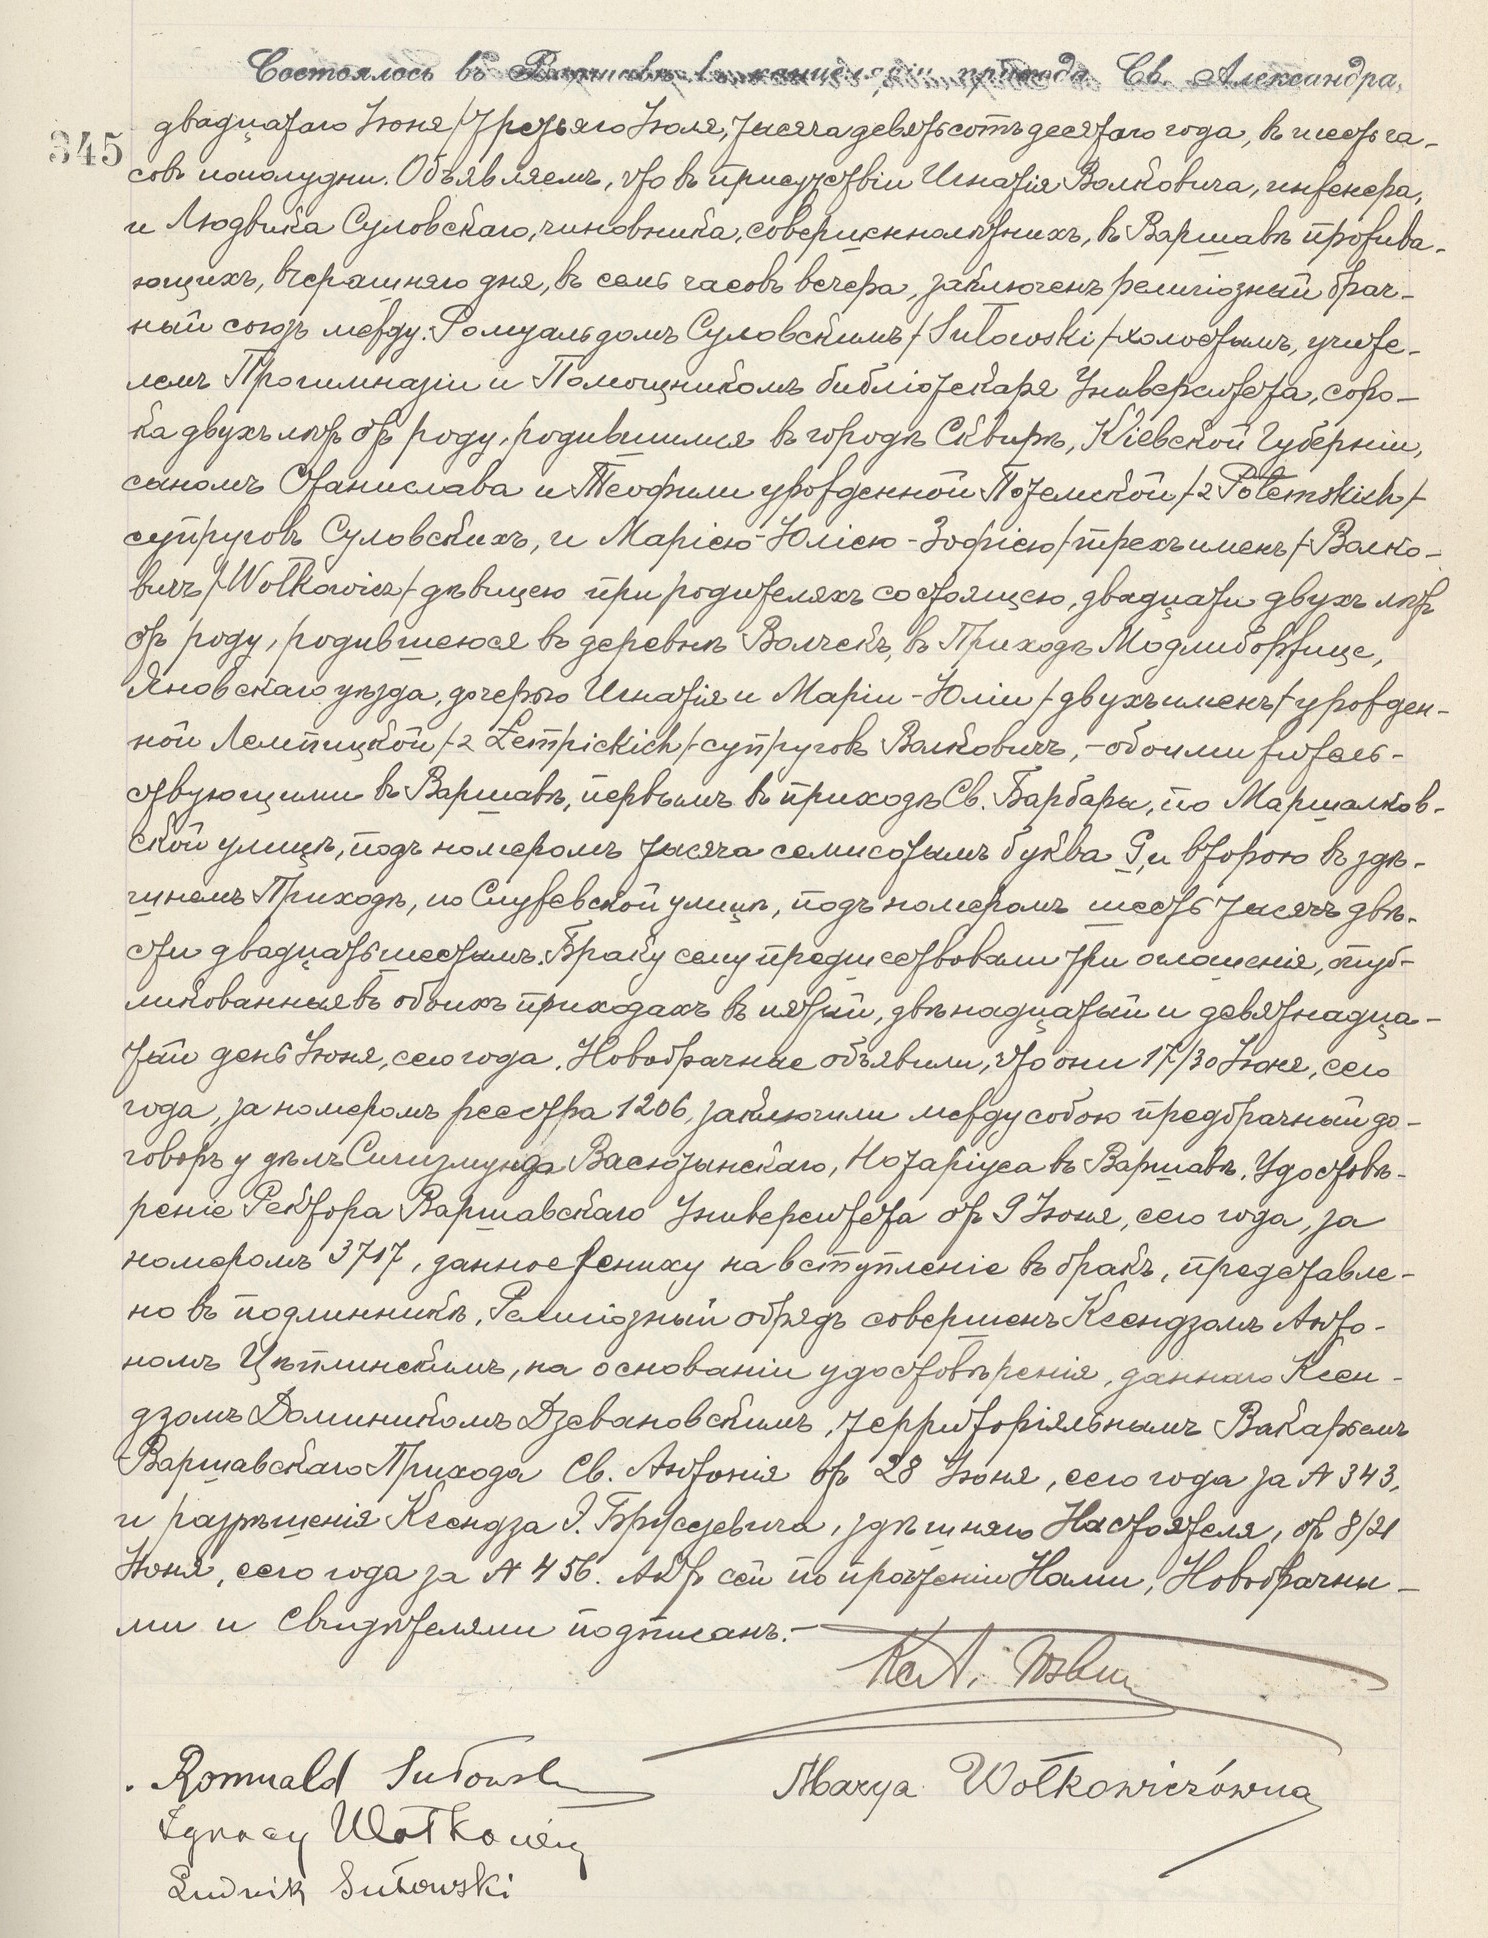 Состоялось въ Варшавѣ въ канцеляріи прихода Св. Александра,
345
двадцатаго Іюня /третьяго Іюля/, тысяча девятьсотъ десятаго года, въ шесть ча-
совъ пополудни. Объявляемъ, что въ присутствіи Игнатія Волковича, инженера,
и Людвика Суловскаго, чиновника, совершеннолѣтнихъ, въ Варшавѣ прожива-
ющихъ, вчерашняго дня, въ семь часовъ вечера, заключенъ религіозный брач-
ный союзъ между: Ромуальдомъ Суловскимъ /Sułowski/ холостымъ, учите-
лемъ Прогимназіи и Помощникомъ библіотекаря Университета, соро-
ка двухъ лѣтъ отъ роду, родившимся въ городѣ Сквирѣ, Кіевской Губерніи,
сыномъ Станислава и Теофили урожденной Потемской /z Potemskich/
супруговъ Суловскихъ, и Маріею-Юліею-Зофіею /трехъ именъ/ Волко-
вичъ /Wołkowicz/ дѣвицею при родителяхъ состоящею, двадцати двухъ лѣтъ
отъ роду, родившеюся въ деревнѣ Волчекъ, въ Приходѣ Модлиборжице,
Яновскаго уѣзда, дочерью Игнатія и Маріи-Юліи /двухъ именъ/ урожден-
ной Лемпицкой /z Łempickich/ супруговъ Волковичъ, - обоими житель-
ствующими въ Варшавѣ, первымъ въ приходѣ Св. Барбары, по Маршалков-
ской улицѣ, подъ номеромъ тысяча семисотымъ буква G, и второю въ здѣ-
шнемъ Приходѣ, по Служевской улицѣ, подъ номеромъ шесть тысячъ двѣ-
сти двадцать шестымъ. Браку сему предшествовали три оглашенія, опуб-
ликованныя въ обоихъ приходахъ въ пятый, двѣнадцатый и девятнадца-
тый день Іюня, сего года. Новобрачные объявили, что они 17/30 Іюня, сего
года, за номеромъ реестра 1206, заключили между собою предбрачный до-
говоръ у дѣлъ Сигизмунда Васютынскаго, Нотаріуса въ Варшавѣ. Удостовѣ-
реніе Ректора Варшавскаго Университета отъ 9 Іюня, сего года, за
номеромъ 3717, данное жениху на вступленіе въ бракъ, представле-
но въ подлинникѣ. Религіозный обрядъ совершенъ Ксендзомъ Анто-
номъ Цѣплинскимъ, на основаніи удостовѣренія, даннаго Ксен-
дзомъ Доминикомъ Дзевановскимъ, территоріяльнымъ Викаріемъ
Варшавскаго Прихода Св. Антонія отъ 28 Іюня, сего года за № 343,
и разрѣшенія Ксендза I. Брусдевича, здѣшняго Настоятеля, отъ 8/21
Іюня, сего года за № 456. Актъ сей по прочтеніи Нами, Новобрачны-
ми и Свидѣтелями подписанъ.-
Romuald Sułowski
Marya Wołkowiczówna
Ignacy Wołkowicz
Ludwik Sułowski